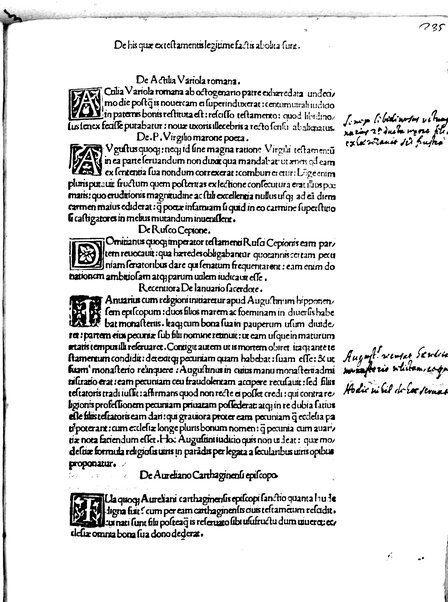 235
De his quæ ex testamentis legitime factis abolita sunt.
De Actilia Variola romana.
ACtilia Variola romana ab octogenario patre exhæredata undeci
mo die postq̃ is nouercam ei superinduxerat: centumuirali iudicio
in paternis bonis restituta est: rescisso testamento: quod libidino
sus senex fecisse putabatur: nouæ uxoris illecebris a recto sensu abalienatus.
De .P. Virgilio marone poeta.
AVgustus quoq; neq; id sine magna ratione Virgilii testamentũ
in ea parte seruandum non duxit qua mandabat ut æneis q̃ eam
ex sententia sua nondum correxerat: combureretur: Lõge enim
pluris putauit fructum quem posteritas ex lectione consecutura erat illius poe
matis: quo eruditionis magnitudine ac stili excellentia nullus usq; ad eã diem
carmen maius ediderat: q̃ poetæ infamiam si quid in eo carmine superstitio
si castigatores in melius mutandum inuenissent.
De Rusco Cepione.
DOmitianus quoq; imperator testamenti Rusci Cepionis eam par
tem reuocauit: qua hæredes obligabantur quotannis certam pecu
niam senatoribus dare qui senatum frequentarent: eam enim do
nationem ambitiosam atq; parum ualem iudicauit esse.
Recentiora De Ianuario sacerdote.
IAnuarius cum religioni initiaretur apud Augustinum hipponen
sem episcopum: duos filios marem ac foeminam in diuersis habe
bat monasteriis. Itaq; cum bona sua in pauperum usum diuide
ret: partem eius pecuniæ sub filii nomine retinuit: ut eam usq; in maturum
ætatis tempus illi reseruaret. Contigit autem ut is mortem obiret itaq; ante te
stamentum condidit: dixitq; pecuniam quam habebat: suam esse: & ut
suam monasterio relinquere: Augustinus in cuius manu monasterii admi
nistratio erat: eam pecuniam ceu fraudolentam accipere recusauit: sed filiis
testatoris tradi iussit: affirmans quod non recte ei posset credi: qui contra re
ligionis professionem pecuniam priuatam possederat atq; in re dubia satius
esse filiis testatoris eam dari: qui grauiora proter eam pecuniam q̃ ecclesia pa
ti poterant: cum ecclesiæ longe pluris bonum nomen: q̃ pecunia cum auari
tiæ nota faciendum esset. Hoc Augustini iudicio quis non uideat: quæ mo
destiæ formula religiosis uiris in paradis per legata a secularibus uiris opibus
proponatur.
De Aureliano Carthaginensi episcopo.
ILla quoq; Aureliani carthaginensis episcopi sanctio quanta laude
digna fuit? cum per eam carthaginensis ciuis testamẽtum rescidit.
cui nati sunt filii posteaq̃ is reseruato sibi usufructu dum uiueret: ec
clesiæ omnia bona sua dono dederat.